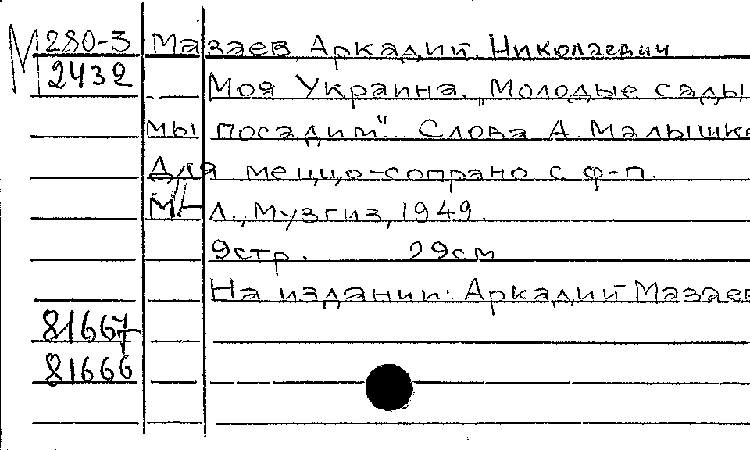 М 280-3 Мазаев, Аркадий Николаевич
2432 Моя Украина. „Молодые сады
мы посадим". Слова А. Малышк
Для меццо-сопрано с ф-п.
М/-Л., Музгиз, 1949.
9стр. 29см
На издании: Аркадий Мазаев
81667
81666